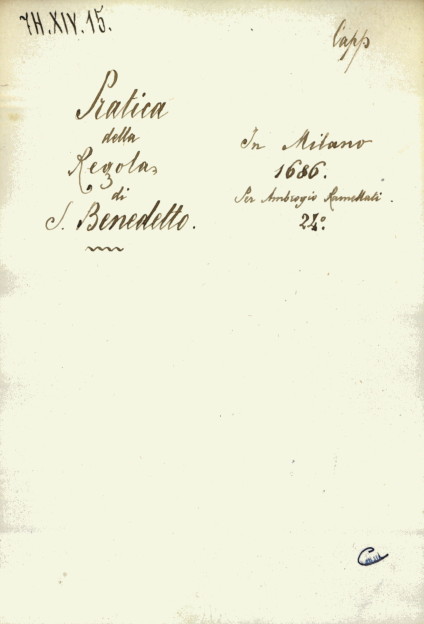 7H.XIV.15.
Capp
Pratica
della
Regola
di
S. Benedetto.
In Milano
1686.
Per Ambrogio Ramellati.
24º.